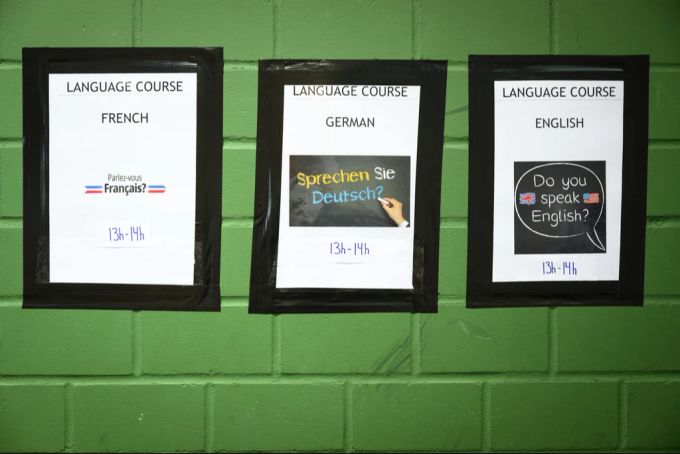 LANGUAGE COURSE
FRENCH
Parlez-vous
Français?
13h-14h
LANGUAGE COURSE
GERMAN
Sprechen Sie
Deutsch?
13h-14h
LANGUAGE COURSE
ENGLISH
Do you
speak
English?
13h-14h